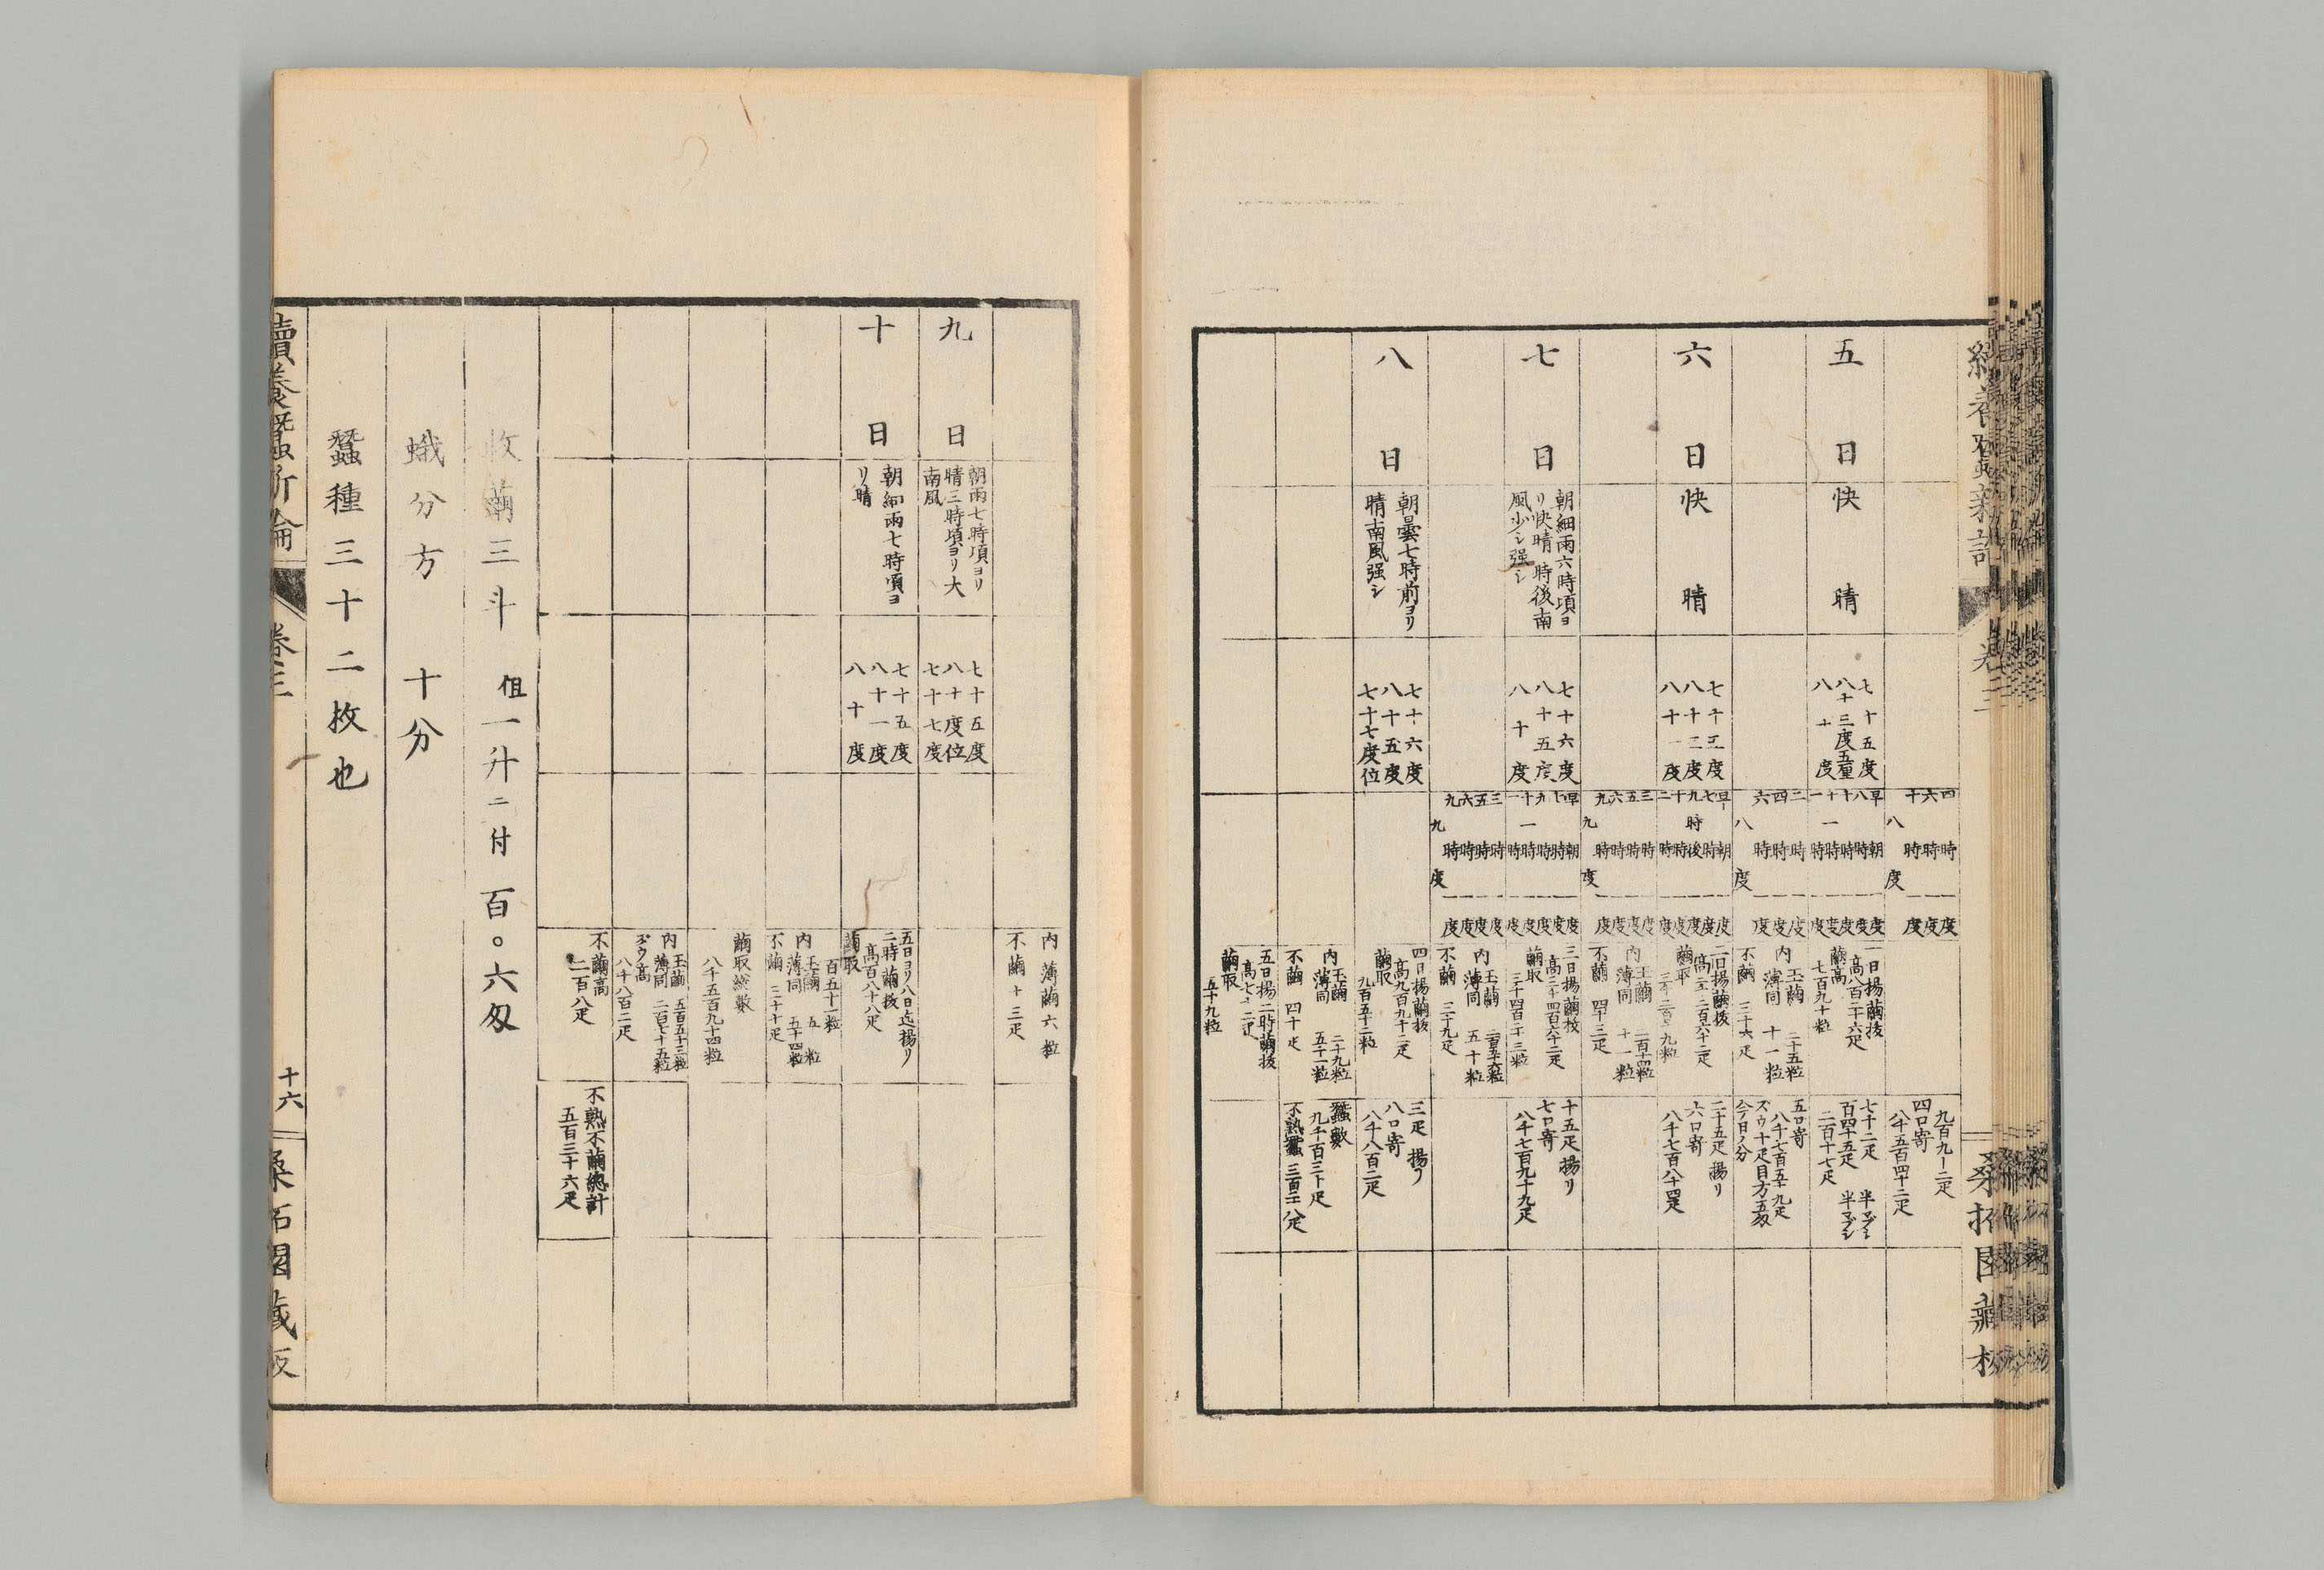 五日
快晴
七十五度
八十三度五厘
八十度
四時
六時
十時
八度
早朝
八時
十時
十一時
二時
四時
六時
八度
一日揚繭拔
高八百二十六疋
繭高
七百九十粒
内玉繭 二十五粒
薄同 十一粒
不繭 三十六疋
四口寄
八千五百四十二疋
七十二疋
百四十五疋
二百十七疋
五口寄
八千七百五十九疋
ズウ十疋目方五匁
今日ノ分
六日
快晴
七十三度
八十三度
八十一度
早朝
七時
九時後
十時
十二時
三時
五時
六時
九時
九度
二日揚繭拔
繭取
内玉繭 二百十四粒
薄同 十一粒
不繭 四十三疋
二十五疋揚リ
六口寄
八千七百八十四疋
七日
朝細雨六時頃ヨ
リ快晴 時後南
風少シ强シ
七十六度
八十五度
八十度
三時
五時
六時
九時
九度
三日揚繭拔
高三千四百六十二疋
繭取
三千四百二十三粒
内玉繭
薄同 五十粒
不繭 三十九疋
十五疋揚リ
七口寄
八千七百九十九疋
八日
朝曇七時前ヨリ
晴南風强シ
七十六度
八十五度
七十七度位
四日揚繭拔
高九百九十二疋
繭取
九百五十二粒
内玉繭 二十九粒
薄同 五十一粒
不繭 四十疋
三疋揚リ
八口寄
八千八百二疋
蠶數
九千百三十疋
不熟蠶 三百二十八疋
五日揚二時繭拔
高七十二疋
繭取
五十九粒
卷三
内薄繭六粒
不繭十三疋
九日
朝雨七時頃ヨリ
晴三時頃ヨリ大
南風
七十五度
八十度位
七十七度
十日
朝細雨七時頃ヨ
リ晴
七十五度
八十一度
八十度
五日ヨリ八日迄揚リ
二時繭拔
高百八十八疋
繭取
百五十一粒
内玉繭 五粒
薄同 五十四粒
不繭 三十七疋
繭取総數
八千五百九十四粒
内玉繭 五百五十三粒
薄同 二百七十五粒
ズウ高
八千八百二疋
不繭高
二百八疋
不熟不繭總計
五百三十六疋
收繭三斗 但一升ニ付百〇六匁
蛾分方 十分
蠶種三十二枚也
續養蠶新論
卷三
十六
桑拓園藏板